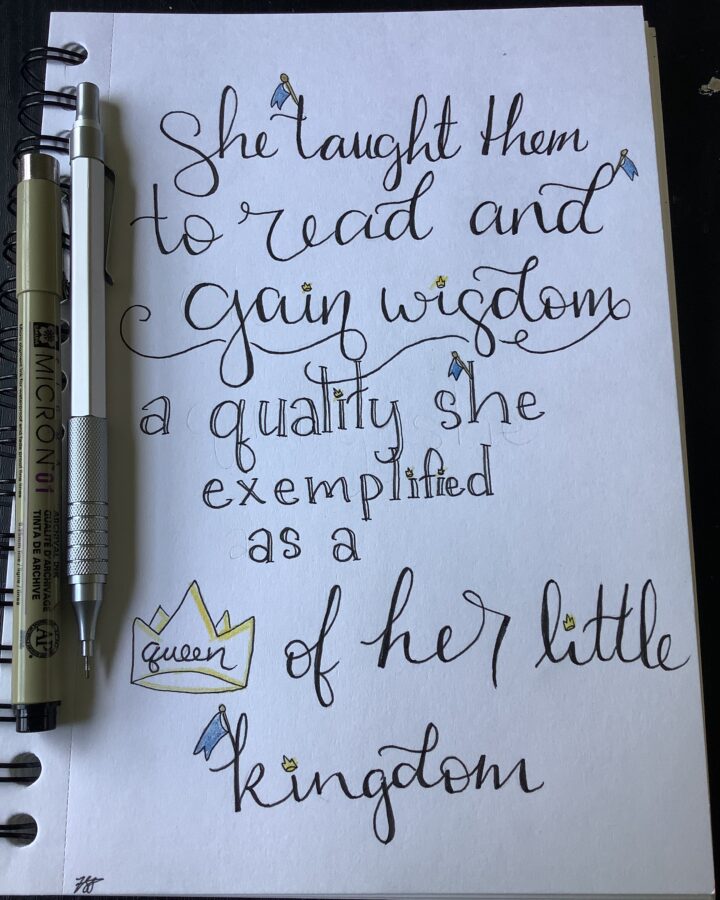 She taught them
to read and
gain wisdom
a quality she
exemplified
as a
queen of her little
kingdom
MICRON 01
ARCHIVAL INK
QUALITÉ D'ARCHIVAGE
TINTA DE ARCHIVE
AP